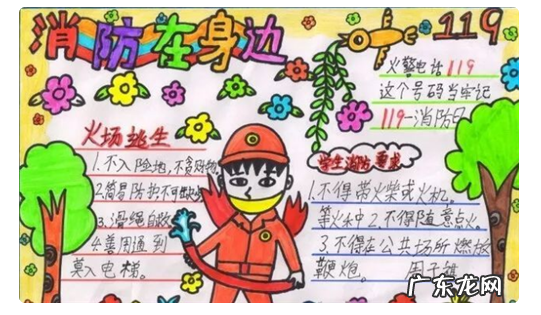 消防在身边
119
火警电话119
这个号码当牢记
119一消防日
火场逃生
1.不入险地,不贪财物
2.简易防护不可缺少
3.滑绳自救
4.善用通到
莫入电梯。
学生消防要求
1.不得带火柴或火机,
等火种2.不得随意点火。
3.不得在公共场所燃放
鞭炮。
广东龙网